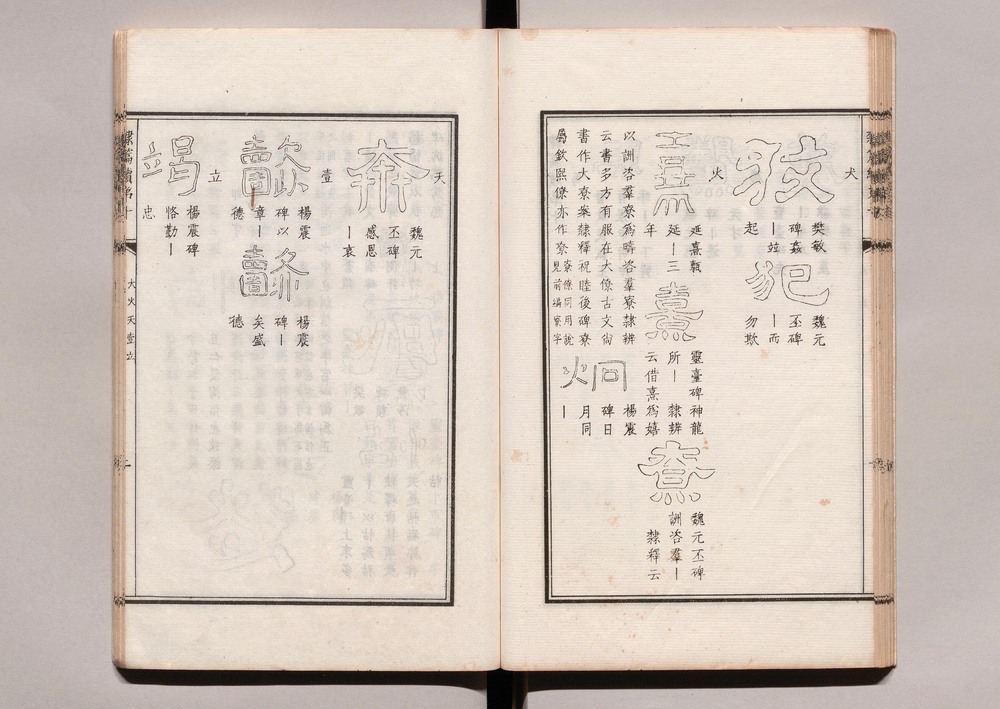 犬
樊敏
碑姦
｜竝
起
犯
魏元
丕碑
｜而
勿欺
火
延熹
延｜三
年
熹
靈臺碑神龍
所｜隸辨
云借熹爲嬉
魏元丕碑
訓咨羣｜
隸釋云
以訓咨羣寮爲疇咨羣寮隸辨
云書多方有服在大僚古文尙
書作大寮案隸釋祝睦後碑寮
屬欽熙僚亦作寮寮僚同用說
見前編寮字
炯
楊震
碑日
月同
｜
夭
奔
魏元
丕碑
感恩
｜哀
壹
懿
楊震
碑以
章｜
德
懿
楊震
碑｜
矣盛
德
立
竭
楊震碑
恪勤｜
忠
大火夭壹立